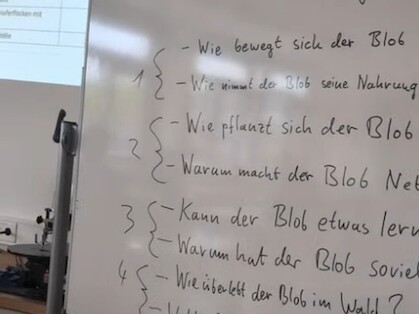 - Wie bewegt sich der Blob
1 - Wie nimmt der Blob seine Nahrung
- Wie pflanzt sich der Blob
2 - Warum macht der Blob Net
3 - Kann der Blob etwas lern
- Warum hat der Blob soviel
4 - Wie überlebt der Blob im Wald?